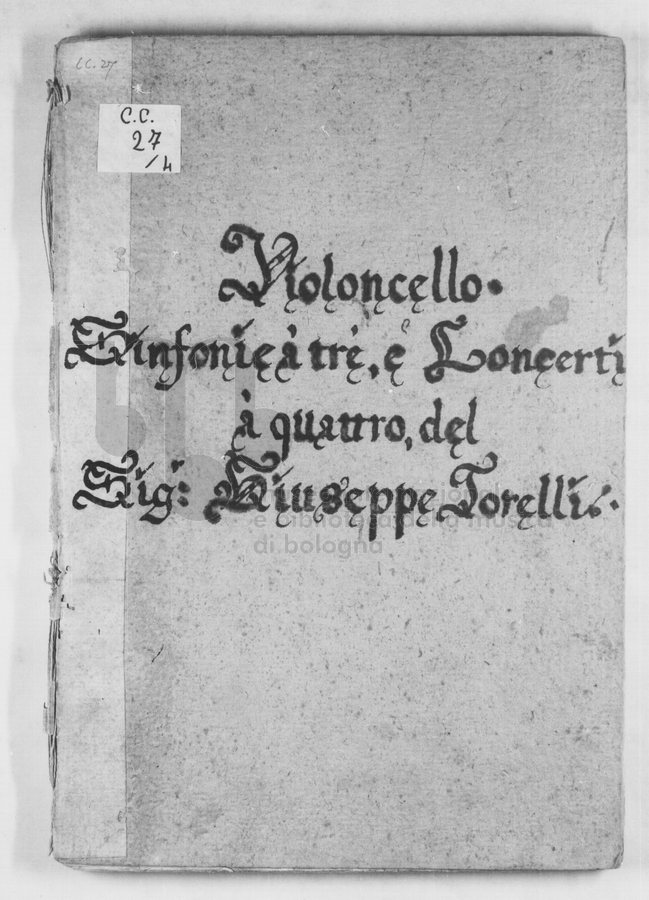 CC.27
C.C.
27
/4
Violoncello.
Sinfonie à trè, è Concerti
à quattro, del
Sig: Giuseppe Torelli.
e biblioteca della musica
di bologna